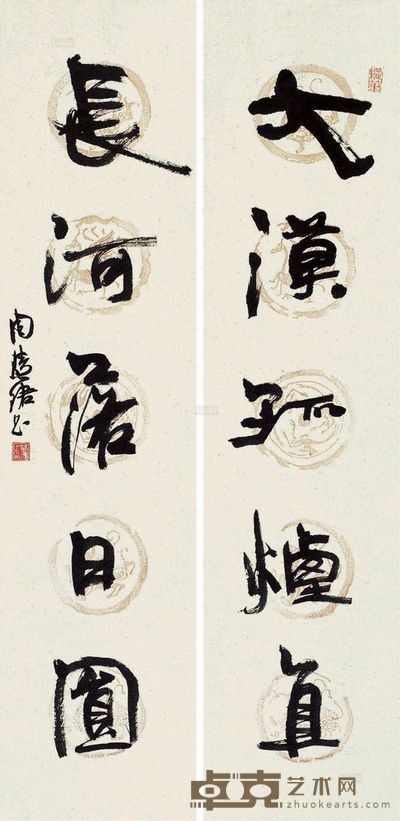 大漠孤煙直
長河落日圓
卓克艺术网
zhuokearts.com